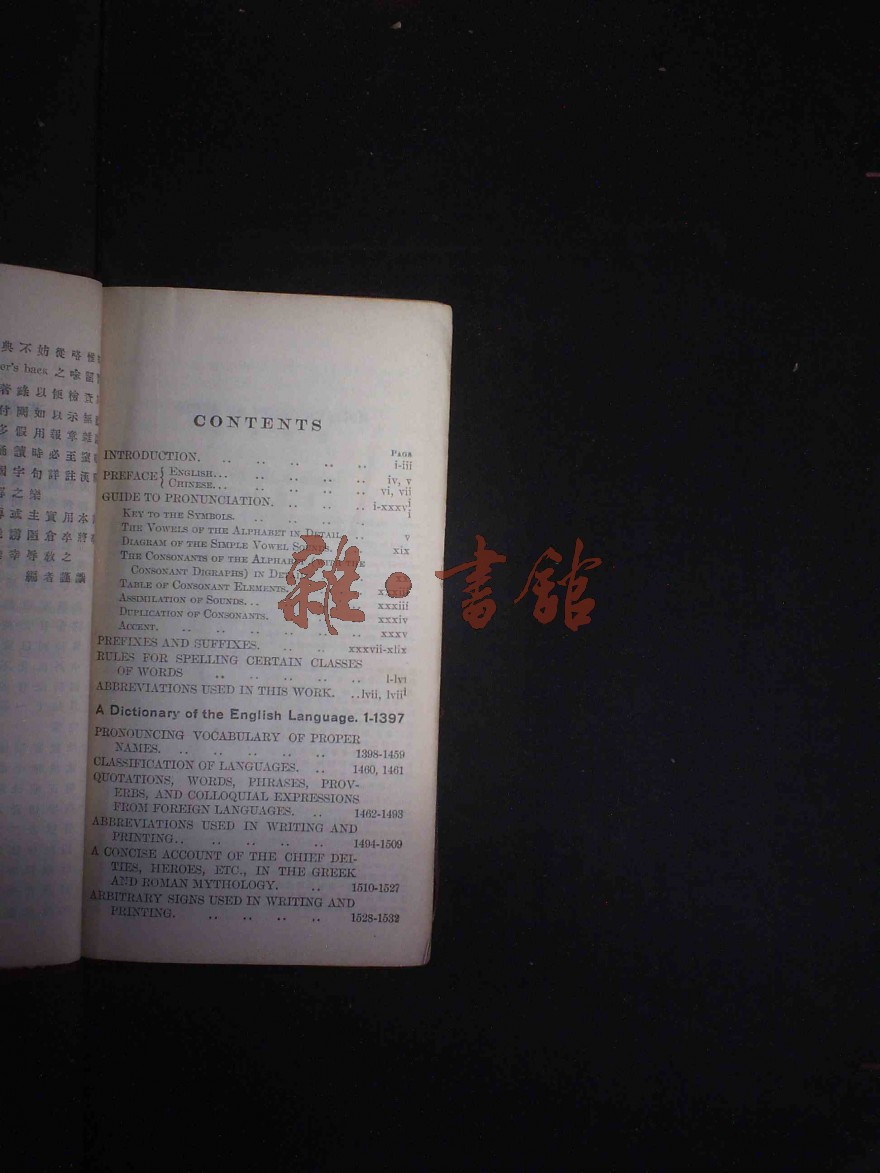 CONTENTS
PAGE
INTRODUCTION. .. .. .. .. .. i-iii
PREFACE { ENGLISH... .. .. .. .. iv, v
CHINESE... .. .. .. .. vi, vii
GUIDE TO PRONUNCIATION. .. .. .. i-xxxvi
KEY TO THE SYMBOLS. .. .. .. . i
THE VOWELS OF THE ALPHABET IN DETAIL .. v
DIAGRAM OF THE SIMPLE VOWEL SOUNDS. xix
THE CONSONANTS OF THE ALPHABET (WITH THE
CONSONANT DIGRAPHS) IN
TABLE OF CONSONANT ELEMENTS.
ASSIMILATION OF SOUNDS... xxxiii
DUPLICATION OF CONSONANTS. xxxiv
ACCENT. .. .. .. .. .. xxxv
PREFIXES AND SUFFIXES. .. .. xxxvii-xlix
RULES FOR SPELLING CERTAIN CLASSES
OF WORDS .. .. .. .. .. l-lvi
ABBREVIATIONS USED IN THIS WORK. .. lvii, lviii
A Dictionary of the English Language. 1-1397
PRONOUNCING VOCABULARY OF PROPER
NAMES. .. .. .. .. .. 1398-1459
CLASSIFICATION OF LANGUAGES. .. 1460, 1461
QUOTATIONS, WORDS, PHRASES, PROV-
ERBS, AND COLLOQUIAL EXPRESSIONS
FROM FOREIGN LANGUAGES. .. 1462-1493
ABBREVIATIONS USED IN WRITING AND
PRINTING.. .. .. .. .. 1494-1509
A CONCISE ACCOUNT OF THE CHIEF DEI-
TIES, HEROES, ETC., IN THE GREEK
AND ROMAN MYTHOLOGY. .. 1510-1527
ARBITRARY SIGNS USED IN WRITING AND
PRINTING. .. .. .. .. 1528-1532
雜·書館
與不妨從略
er's back 之
著錄以便檢查
如以示
多假用報章
誦讀時必至
字句詳註漢
之樂
或主實用本
之教辱幸
編者謹識